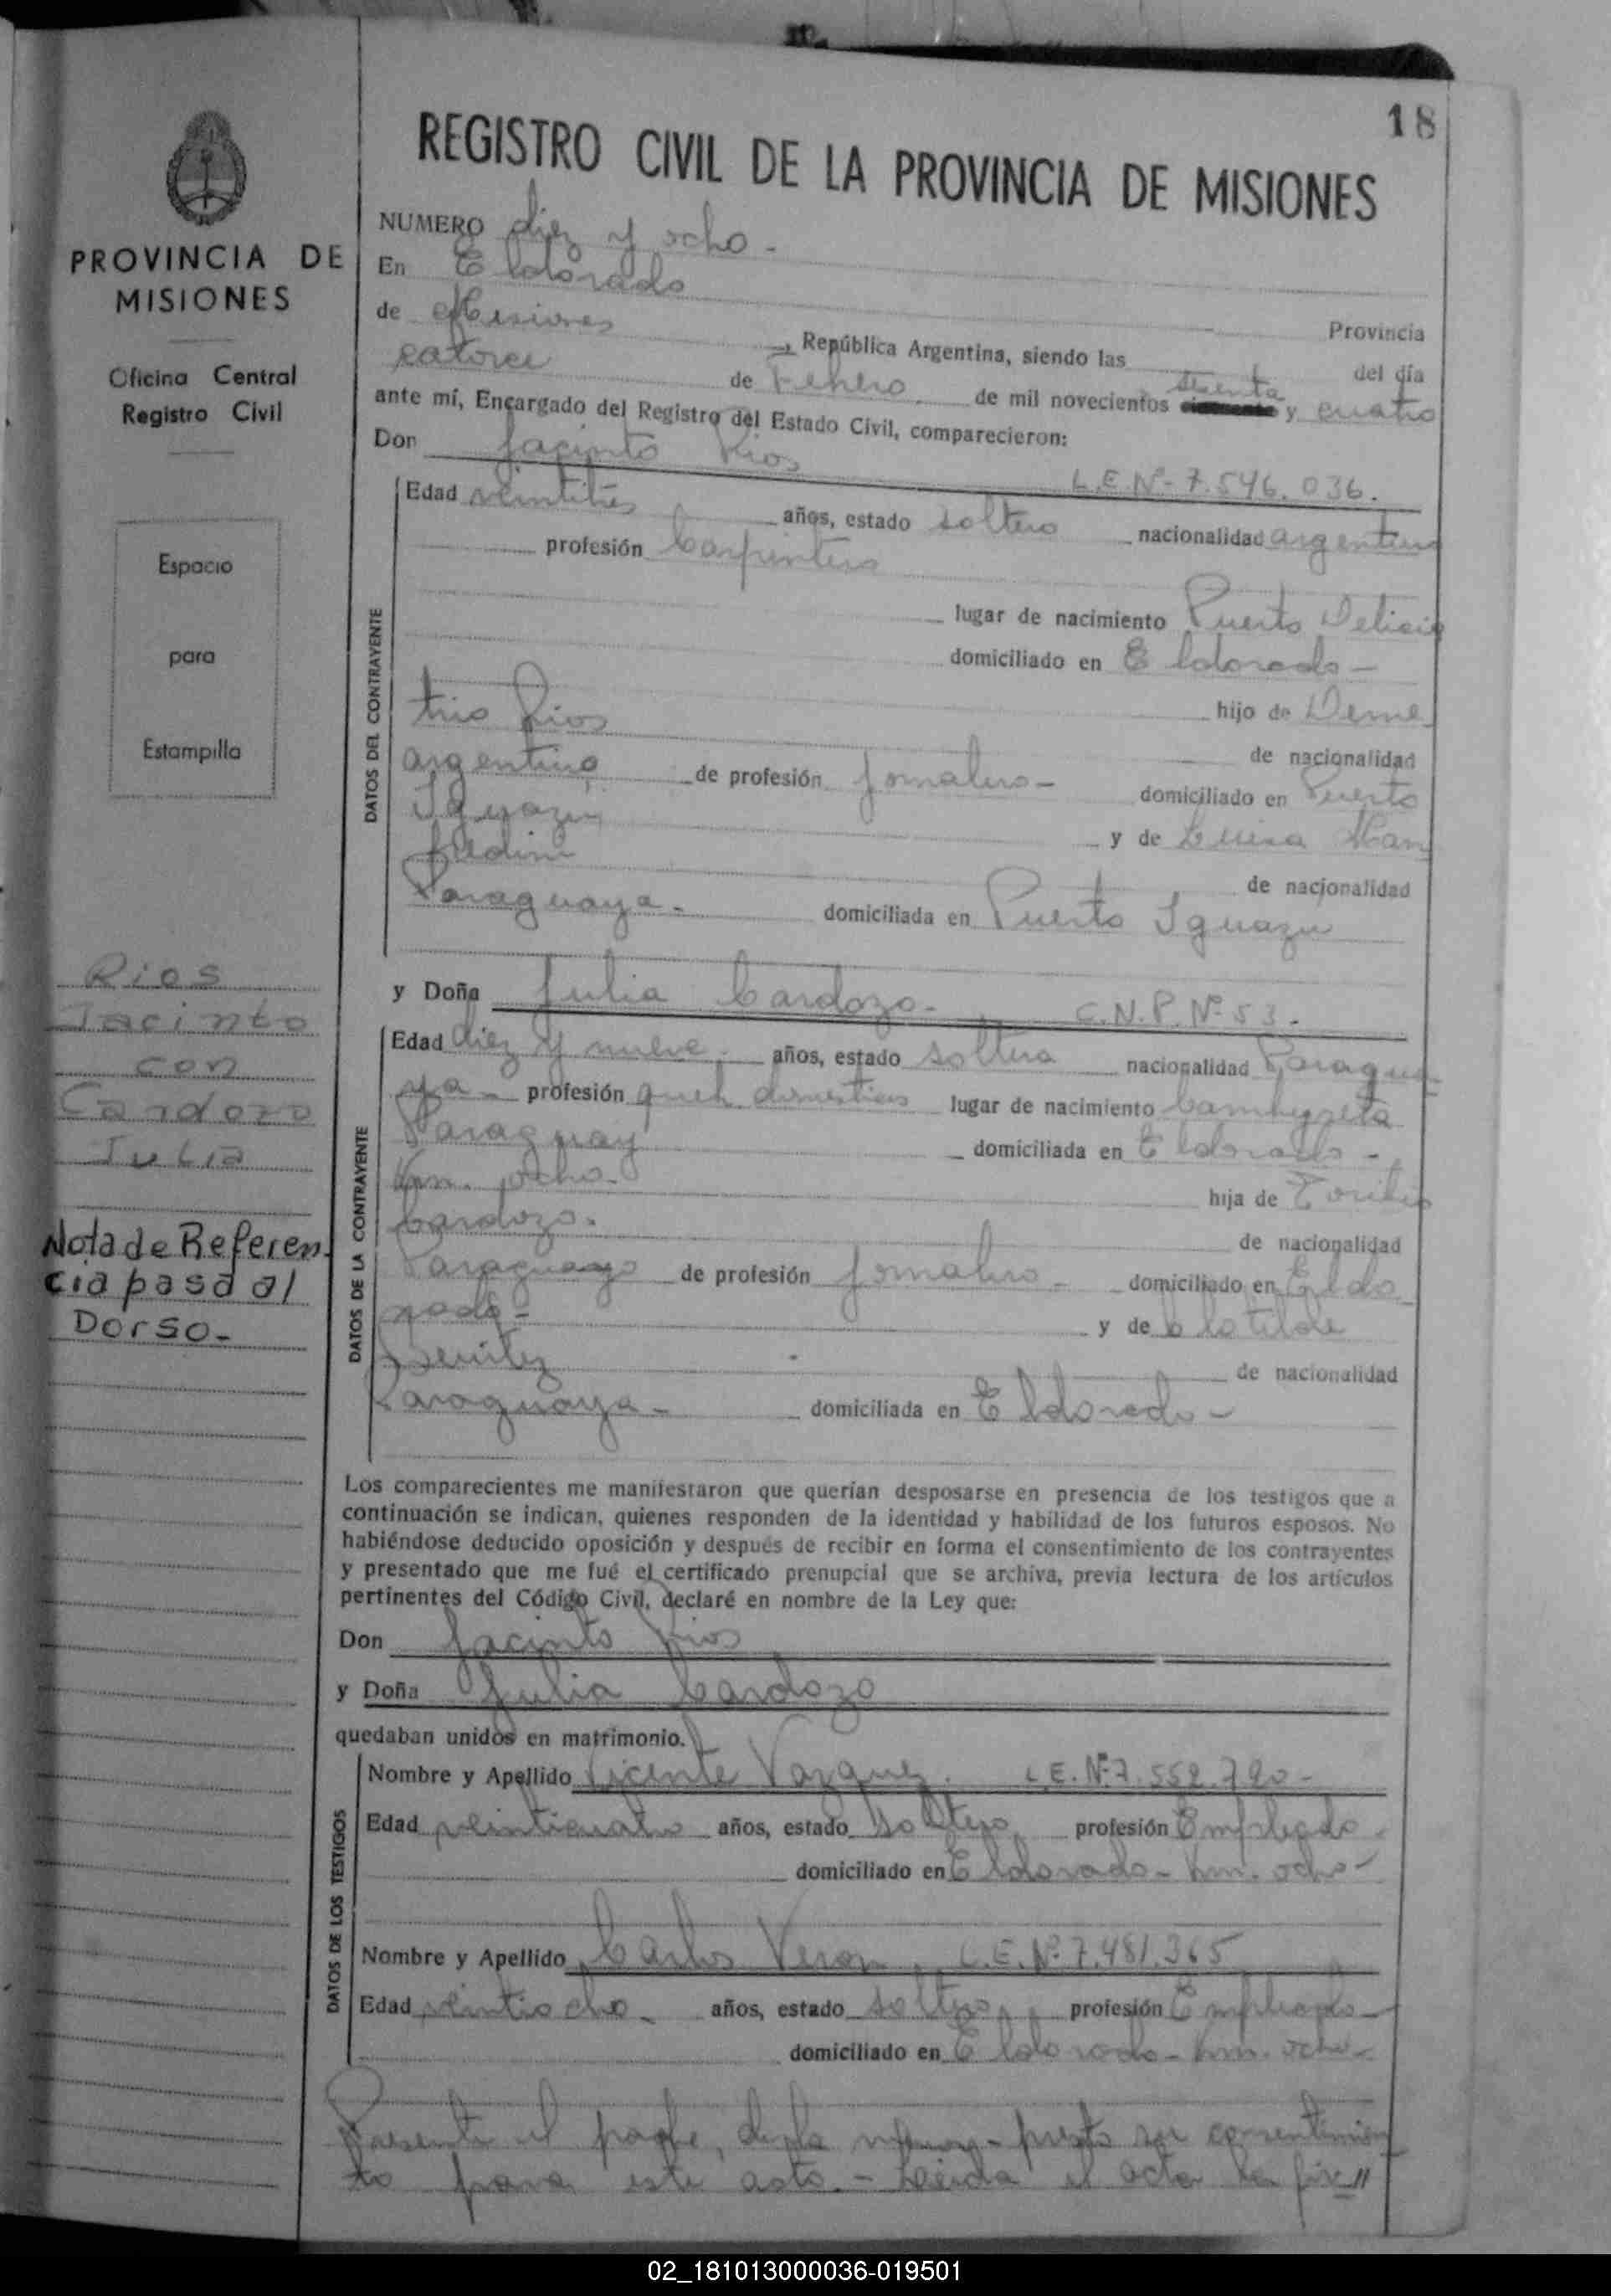 18
REGISTRO CIVIL DE LA PROVINCIA DE MISIONES
PROVINCIA DE
MISIONES
Oficina Central
Registro Civil
Espacio
para
Estampilla
Rios
Jacinto
con
Cardozo
Julia
Nota de Referen-
cia pasa al
Dorso-
NUMERO diez y ocho-
En Eldorado
Provincia
de Misiones, República Argentina, siendo las
del día
catorce de Febrero de mil novecientos cincuenta sesenta y cuatro
ante mí, Encargado del Registro del Estado Civil, comparecieron:
Don Jacinto Rios L.E.Nº-7.546.036.
DATOS DEL CONTRAYENTE
Edad veintitrés años, estado soltero nacionalidad argentino
profesión Carpintero
lugar de nacimiento Puerto Delicia
domiciliado en Eldorado-
hijo de Deme
trio Rios
de nacionalidad
argentino de profesión jornalero- domiciliado en Puerto
Iguazú y de Luisa
de nacionalidad
Paraguaya- domiciliada en Puerto Iguazu
y Doña Julia Cardozo- C.N.P.Nº53-
DATOS DE LA CONTRAYENTE
Edad diez y nueve- años, estado soltera nacionalidad Paragua-
ya- profesión domesticos lugar de nacimiento
Paraguay domiciliada en Eldorado-
Km. ocho- hija de Toribio
Cardozo-
de nacionalidad
Paraguayo de profesión jornalero- domiciliado en Eldo
rado- y de Clotilde
Benitez
de nacionalidad
Paraguaya- domiciliada en Eldorado-
Los comparecientes me manifestaron que querían desposarse en presencia de los testigos que a
continuación se indican, quienes responden de la identidad y habilidad de los futuros esposos. No
habiéndose deducido oposición y después de recibir en forma el consentimiento de los contrayentes
y presentado que me fué el certificado prenupcial que se archiva, previa lectura de los artículos
pertinentes del Código Civil, declaré en nombre de la Ley que:
Don Jacinto Rios
y Doña Julia Cardozo
quedaban unidos en matrimonio.
DATOS DE LOS TESTIGOS
Nombre y Apellido Vicente Vazquez. L.E.Nº7.552.720-
Edad veinticuatro años, estado soltero profesión Empleado-
domiciliado en Eldorado- Km. ocho-
Nombre y Apellido Carlos Veron. L.E.Nº7.481.365
Edad veintiocho- años, estado soltero, profesión Empleado-
domiciliado en Eldorado- Km. ocho-
Presente el padre, de la menor- presta su consentimien
to para este acto.- Leida el acta la fir//
02_181013000036-019501